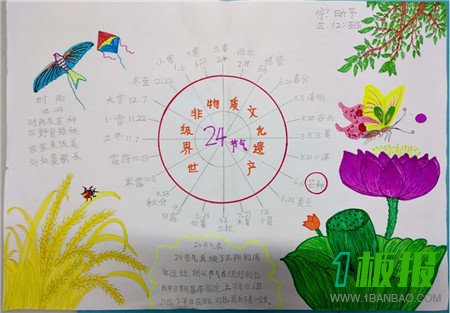 三(2)班
时雨
陆游
时雨及芒种
四野皆插秧
家家麦饭美
处处菱歌长
世界级非物质文化遗产
24节气
立春
2.4
雨水
惊蛰
3.20春分
4.5清明
4.20谷雨
5.5立夏
5.21小满
芒种
6.21夏至
小暑
7.7
大暑
立秋
处暑
8.23
白露
秋分
9.23
寒露
霜降10.23
立冬11.7
大雪12.7
冬至12.22
小寒
1.6
大寒
1.20
24节气表
24节气反映了太阳的周
年运动,所以节气在现行的公
历中日期基本固定,上半年在6日、
21日,下半年在8日、23日,
1板报
WWW.1BANBAO.COM